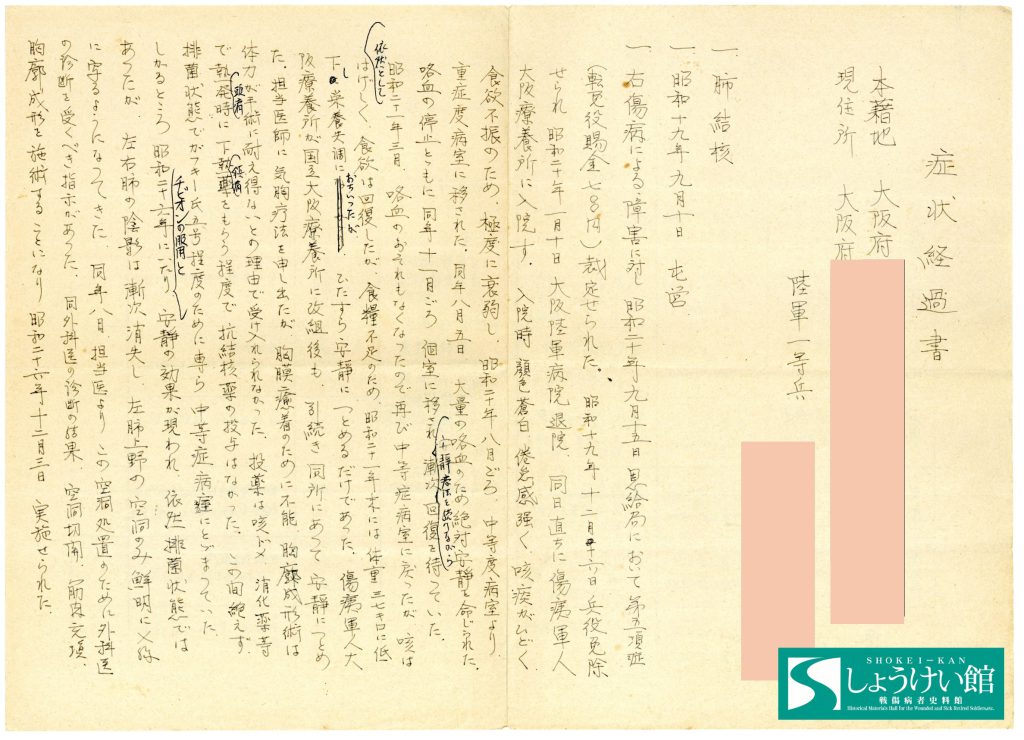 症状経過書
本籍地　大阪府
現住所　大阪府
陸軍一等兵
一、肺結核
一、昭和十九年九月十日　屯営
一、右傷病による障害に対し　昭和二十年九月十五日　恩給局において第五項症
（転免役賜金七八〇円）裁定せられた。　昭和十九年十二月十六日　兵役免除
せられ　昭和二十年一月十日　大阪陸軍病院退院、同日直ちに傷痍軍人
大阪療養所に入院す。　入院時　顔色蒼白　倦怠感強く、咳痰がひどく
食欲不振のため、極度に衰弱し、昭和二十年八月ごろ、中等度病室より
重症度病室に移された。同年八月五日　大量の喀血のため絶対安静を命じられた。
喀血の停止とともに同年十一月ごろ　個室に移され　安静看法を守りながら　漸次回復を待っていた。
昭和二十一年三月、喀血のおそれもなくなったので再び中等症病室に戻ったが、咳は
依然として　はげしく、食欲は回復したが、食糧不足のため、昭和二十一年末には体重三七キロに低
下し　栄養失調に　おちいったが　ひたすら安静につとめるだけであった。傷痍軍人大
阪療養所が国立大阪療養所に改組後も、引続き同所にあって安静につとめ
た。担当医師に気胸疗法を申し出たが　胸膜癒着のために不能、胸廓成形術は
体力が手術に耐え得ないとの理由で受け入れられなかった。投薬は咳ドメ　消化薬等
で　発熱時に下熱薬をもらう程度で　抗結核薬の投与はなかった。この間絶えず
排菌状態でガフキー氏五号程度のために専ら　中等症病室にとどまっていた。
しかるところ　昭和二十六年にいたり　チビオンの服用と　安静の効果が現われ　依然排菌状態では
あったが、左右肺の陰影は漸次消失し、左肺上野の空洞のみ鮮明にメ線
に写るようになってきた。同年八月　担当医より　この空洞処置のために外科医
の診断を受くべき指示があった。同外科医の診断の結果、空洞切開、筋肉充填、
胸廓成形を施術することになり　昭和二十六年十二月三日　実施せられた。
SHOKEI-KAN
しょうけい館
戦傷病者史料館
Historical Materials Hall for the Wounded and Sick Retired Soldiers,etc.